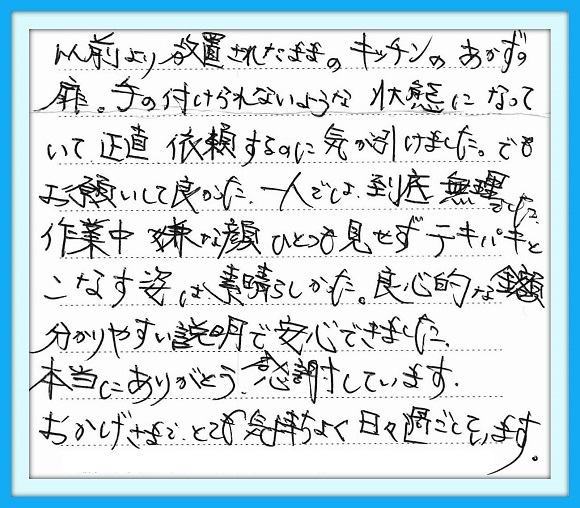 以前より放置されたままのキッチンのあかずの
扉。手の付けられないような状態になって
いて正直依頼するのに気が引けました。でも
お願いして良かった。一人では到底無理でした。
作業中嫌な顔ひとつも見せずテキパキと
こなす姿は素晴らしかった。良心的な金額
分かりやすい説明で安心できました。
本当にありがとう。感謝しています。
おかげさまで、とても気持ちよく日々過ごせています。